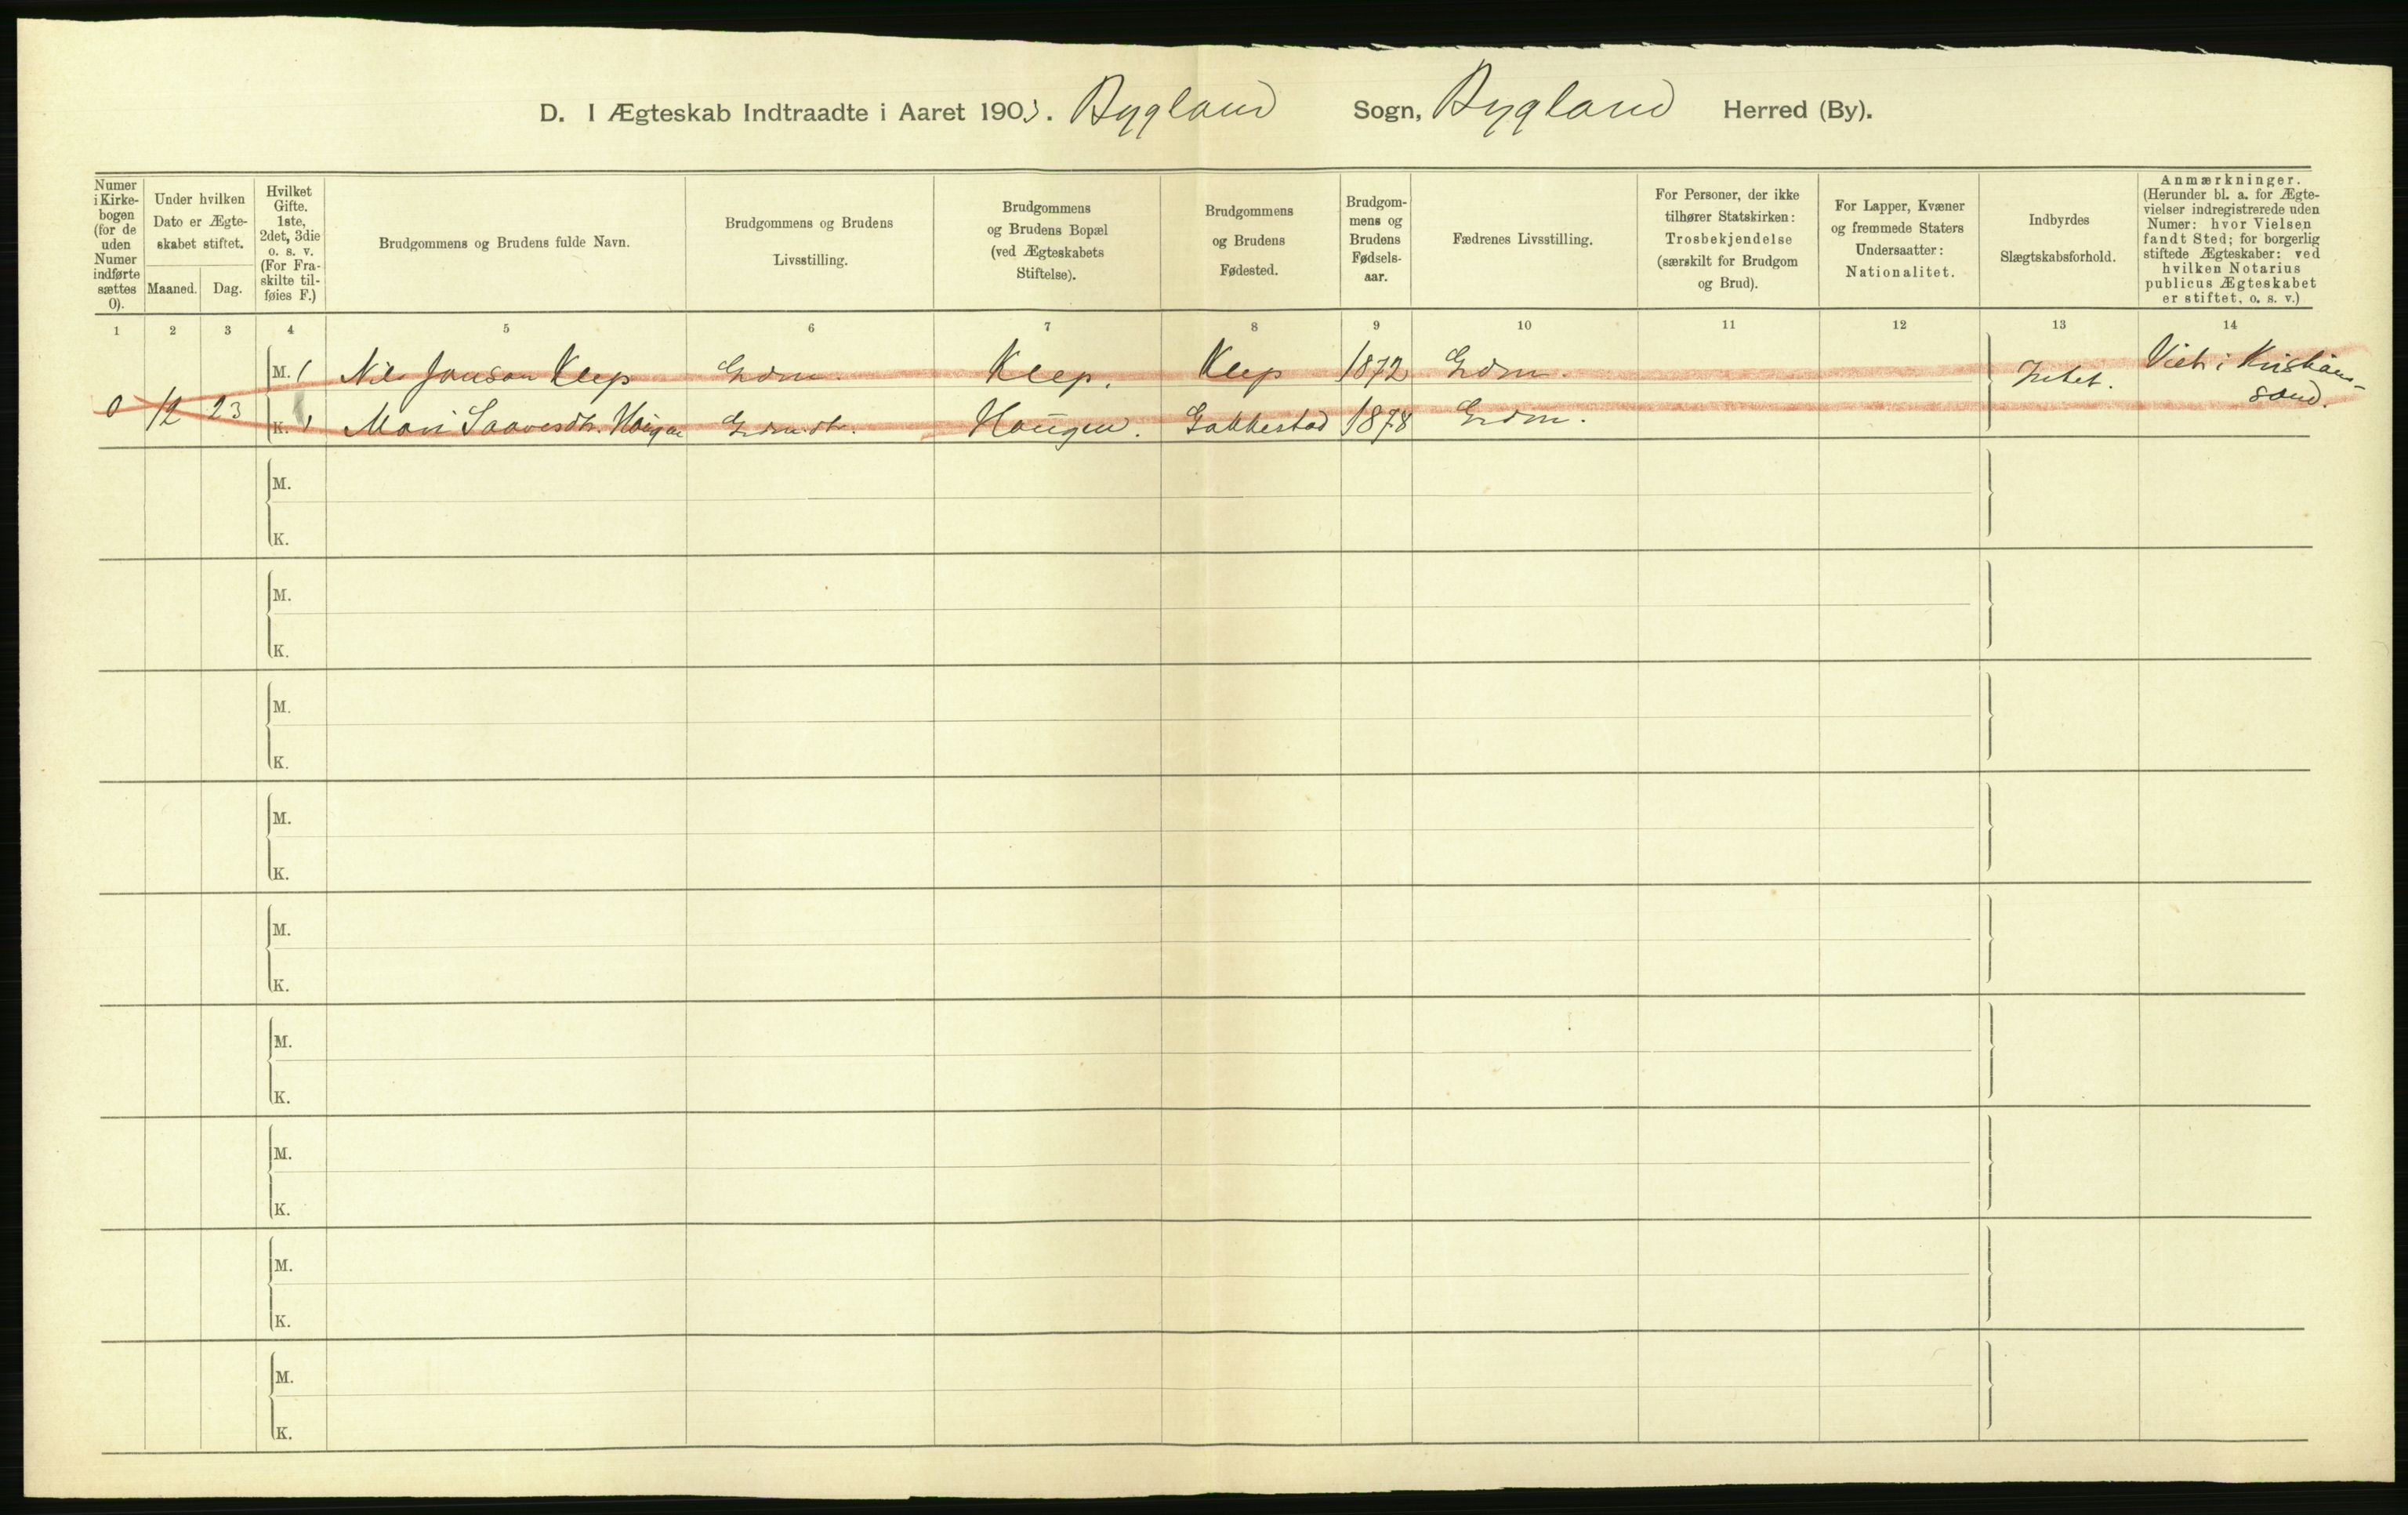 D. I Ægteskab Indtraadte i Aaret 1903. Bygland Sogn, Bygland Herred (By).
Numer i Kirke-bogen (for de uden Numer indførte sættes 0).
Under hvilken Dato er Ægte-skabet stiftet.
Maaned. Dag.
Hvilket Gifte. 1ste, 2det, 3die o. s. v. (For Fra-skilte til-føies F.)
Brudgommens og Brudens fulde Navn.
Brudgommens og Brudens Livsstilling.
Brudgommens og Brudens Bopæl (ved Ægteskabets Stiftelse).
Brudgommens og Brudens Fødested.
Brudgom-mens og Brudens Fødsels-aar.
Fædrenes Livsstilling.
For Personer, der ikke tilhører Statskirken: Trosbekjendelse (særskilt for Brudgom og Brud).
For Lapper, Kvæner og fremmede Staters Undersaatter: Nationalitet.
Indbyrdes Slægtskabsforhold.
Anmærkninger. (Herunder bl. a. for Ægte-vielser indregistrerede uden Numer: hvor Vielsen fandt Sted; for borgerlig stiftede Ægteskaber: ved hvilken Notarius publicus Ægteskabet er stiftet, o. s. v.)
1 2 3 4 5 6 7 8 9 10 11 12 13 14
M. 1 Nils Jonson Klep Grdm. Klep. Klep 1872 Grdm. Intet. Viet i Kristians-
sand.
0 12 23 K. 1 Mari Saavesdtr. Haugen Grdm.dtr. Haugen. Gakkestad 1878 Grdm.
M.
K.
M.
K.
M.
K.
M.
K.
M.
K.
M.
K.
M.
K.
M.
K.
M.
K.